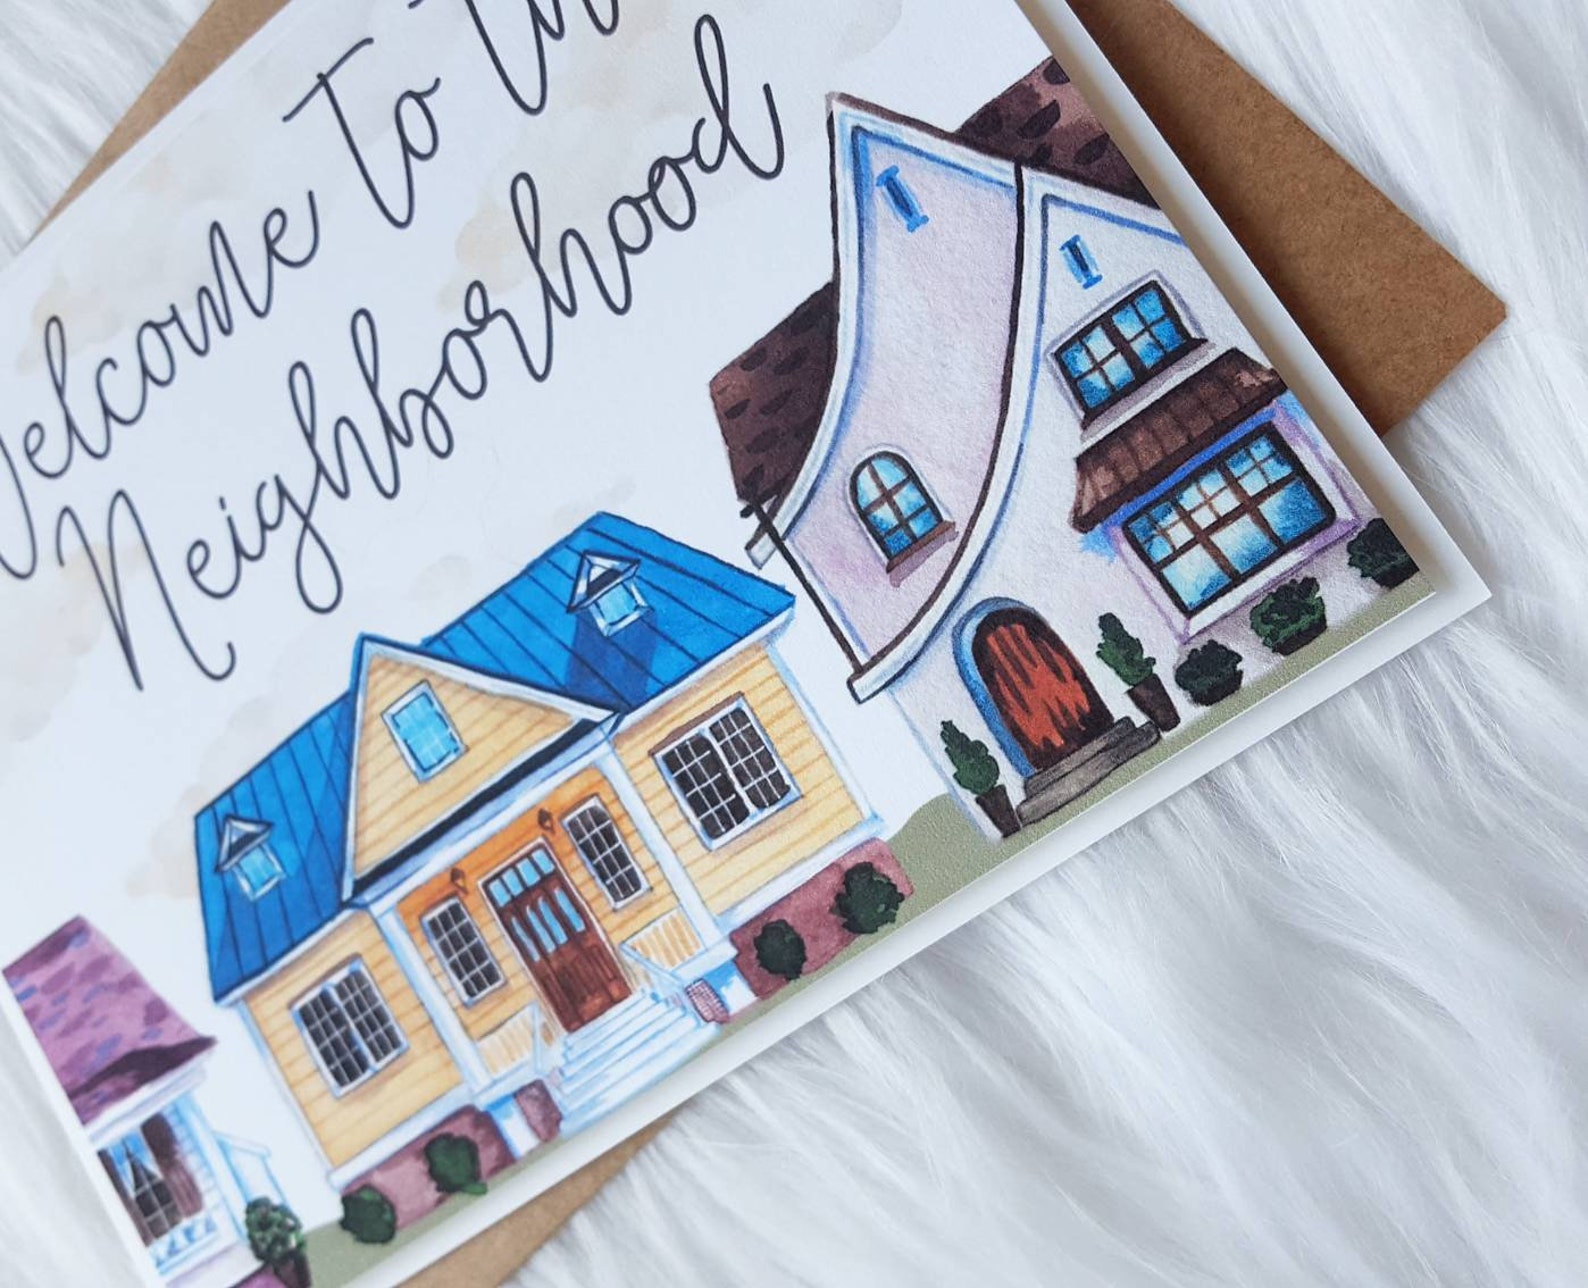 Welcome to the
Neighborhood